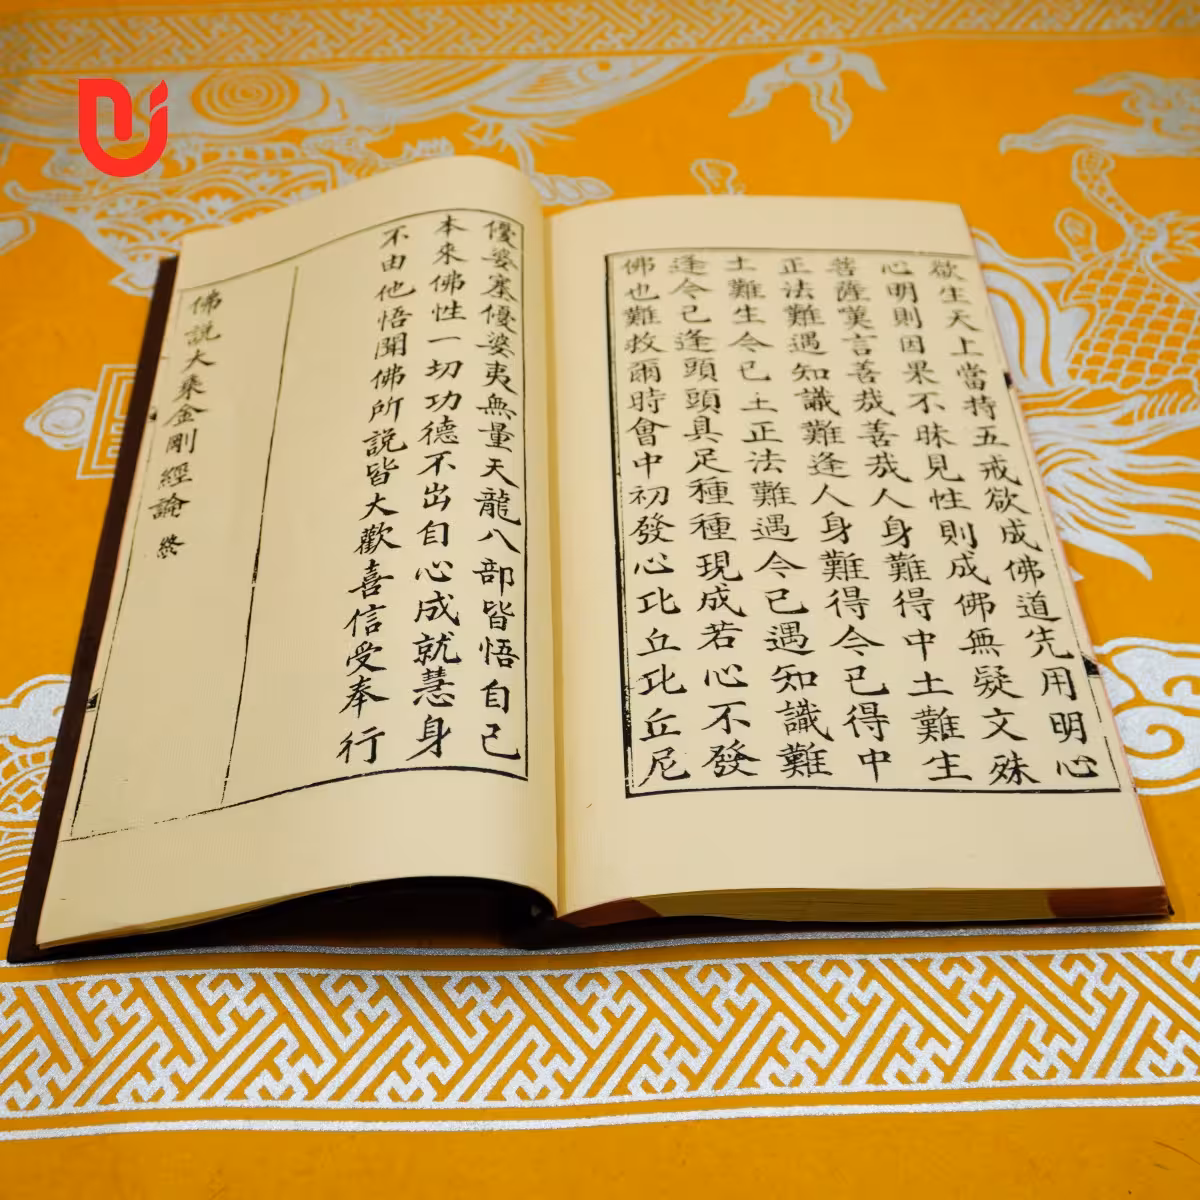 欲生天上當持五戒欲成佛道先用明心
心明則因果不昧見性則成佛無疑文殊
菩薩嘆言善哉善哉人身難得中土難生
正法難遇知識難逢人身難得今已得中
土難生今已土正法難遇今已遇知識難
逢今已逢頭頭具足種種現成若心不發
佛也難救爾時會中初發心比丘比丘尼
優婆塞優婆夷無量天龍八部皆悟自己
本來佛性一切功德不出自心成就慧身
不由他悟聞佛所說皆大歡喜信受奉行
佛說大乘金剛經論 終